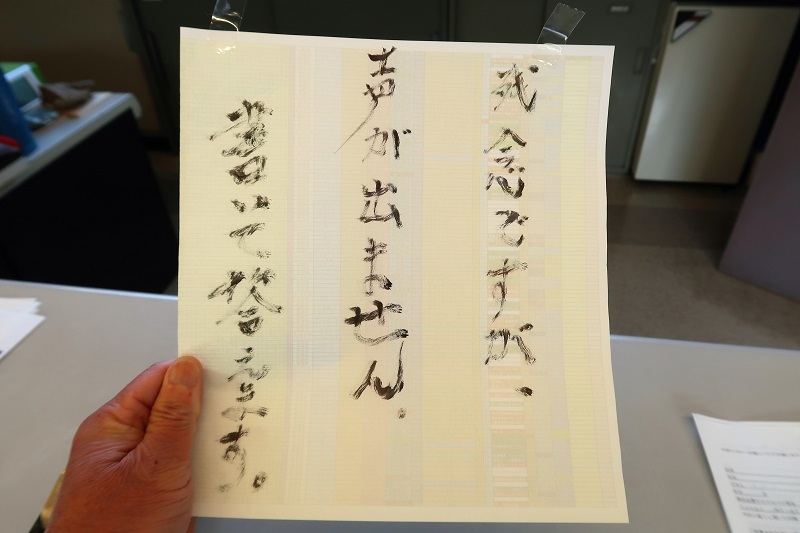 残念ですが、
声が出ません。
書いて答えます。